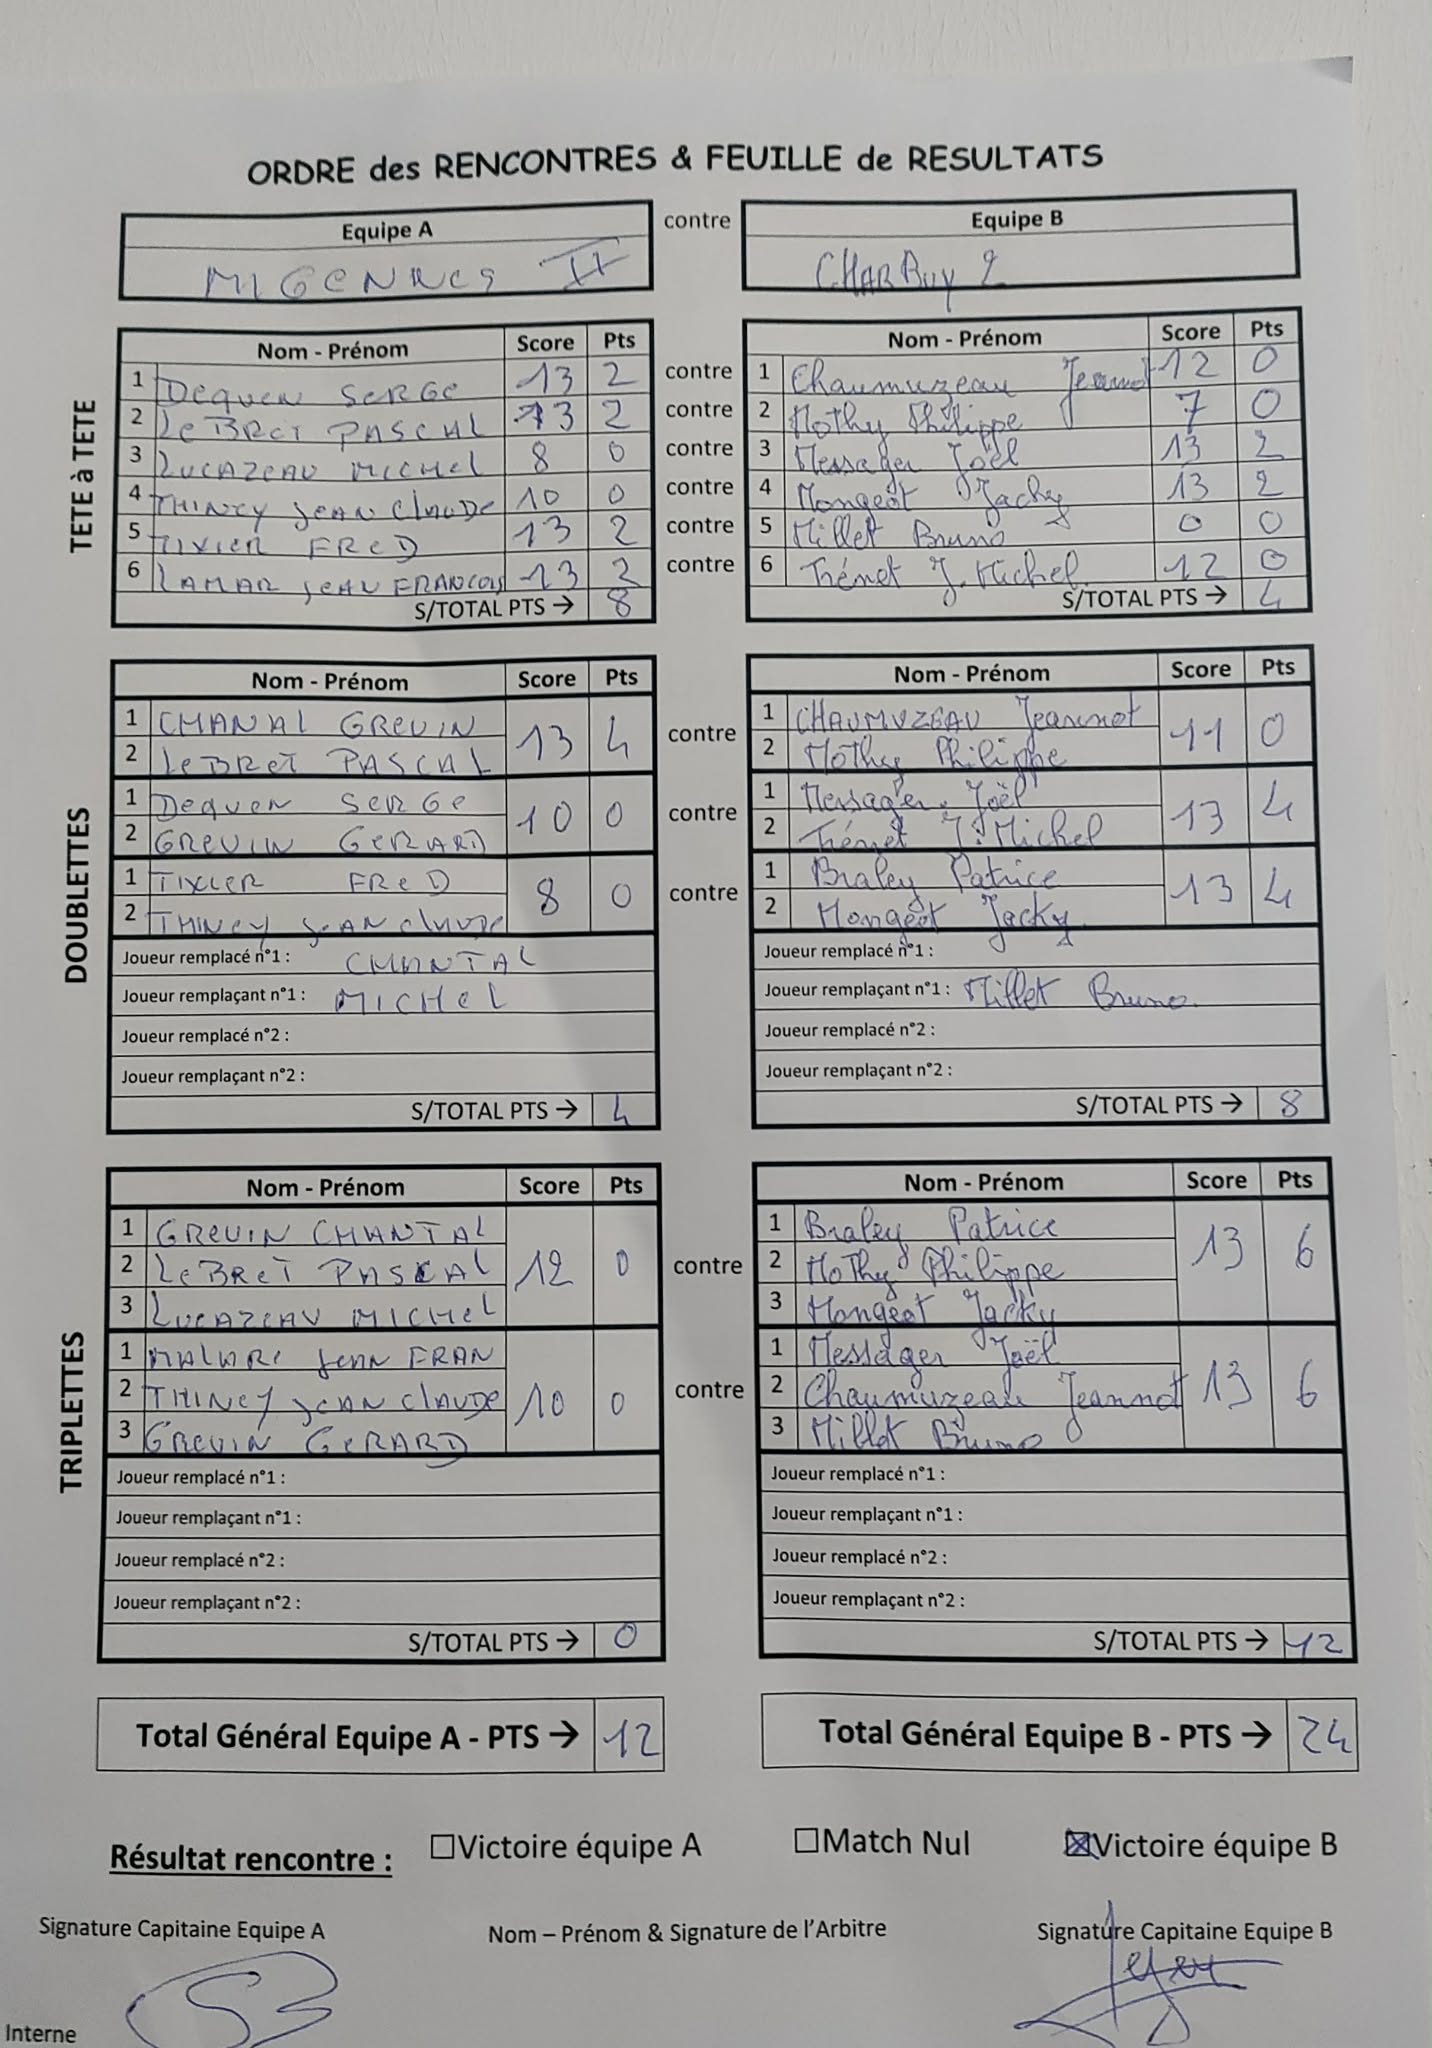 ORDRE des RENCONTRES & FEUILLE de RESULTATS
Equipe A contre Equipe B
MIGENNES II CHARBUY 2
TETE à TETE
Nom - Prénom Score Pts Nom - Prénom Score Pts
1 Dequen SERGE 13 2 contre 1 Chaumuzeau Jeannot 12 0
2 Le BRET PASCAL 13 2 contre 2 Mothy Philippe 7 0
3 LUCAZEAU MICHEL 8 0 contre 3 Messager Joël 13 2
4 THINEY JEAN CLAUDE 10 0 contre 4 Mongeot Jacky 13 2
5 TIXIER FRED 13 2 contre 5 Millet Bruno 0 0
6 LAMAR JEAN FRANCOIS 13 2 contre 6 Trémet J. Michel 12 0
S/TOTAL PTS → 8 S/TOTAL PTS → 4
DOUBLETTES
Nom - Prénom Score Pts Nom - Prénom Score Pts
1 CHANAL GREVIN 13 4 contre 1 CHAUMUZEAU Jeannot 11 0
2 Le BRET PASCAL 2 Mothy Philippe
1 Dequen SERGE 10 0 contre 1 Messager Joël 13 4
2 GREVIN GERARD 2 Trémet J. Michel
1 TIXIER FRED 8 0 contre 1 Braley Patrice 13 4
2 THINEY JEAN CLAUDE 2 Mongeot Jacky
Joueur remplacé n°1 : CHANTAL Joueur remplacé n°1 :
Joueur remplaçant n°1 : MICHEL Joueur remplaçant n°1 : Millet Bruno
Joueur remplacé n°2 : Joueur remplacé n°2 :
Joueur remplaçant n°2 : Joueur remplaçant n°2 :
S/TOTAL PTS → 4 S/TOTAL PTS → 8
TRIPLETTES
Nom - Prénom Score Pts Nom - Prénom Score Pts
1 GREVIN CHANTAL 12 0 contre 1 Braley Patrice 13 6
2 Le BRET PASCAL 2 Mothy Philippe
3 LUCAZEAU MICHEL 3 Mongeot Jacky
1 JEAN FRAN 10 0 contre 1 Messager Joël 13 6
2 THINEY JEAN CLAUDE 2 Chaumuzeau Jeannot
3 GREVIN GERARD 3 Millet Bruno
Joueur remplacé n°1 : Joueur remplacé n°1 :
Joueur remplaçant n°1 : Joueur remplaçant n°1 :
Joueur remplacé n°2 : Joueur remplacé n°2 :
Joueur remplaçant n°2 : Joueur remplaçant n°2 :
S/TOTAL PTS → 0 S/TOTAL PTS → 12
Total Général Equipe A - PTS → 12 Total Général Equipe B - PTS → 24
Résultat rencontre : ☐Victoire équipe A ☐Match Nul ☒Victoire équipe B
Signature Capitaine Equipe A Nom – Prénom & Signature de l'Arbitre Signature Capitaine Equipe B
Interne